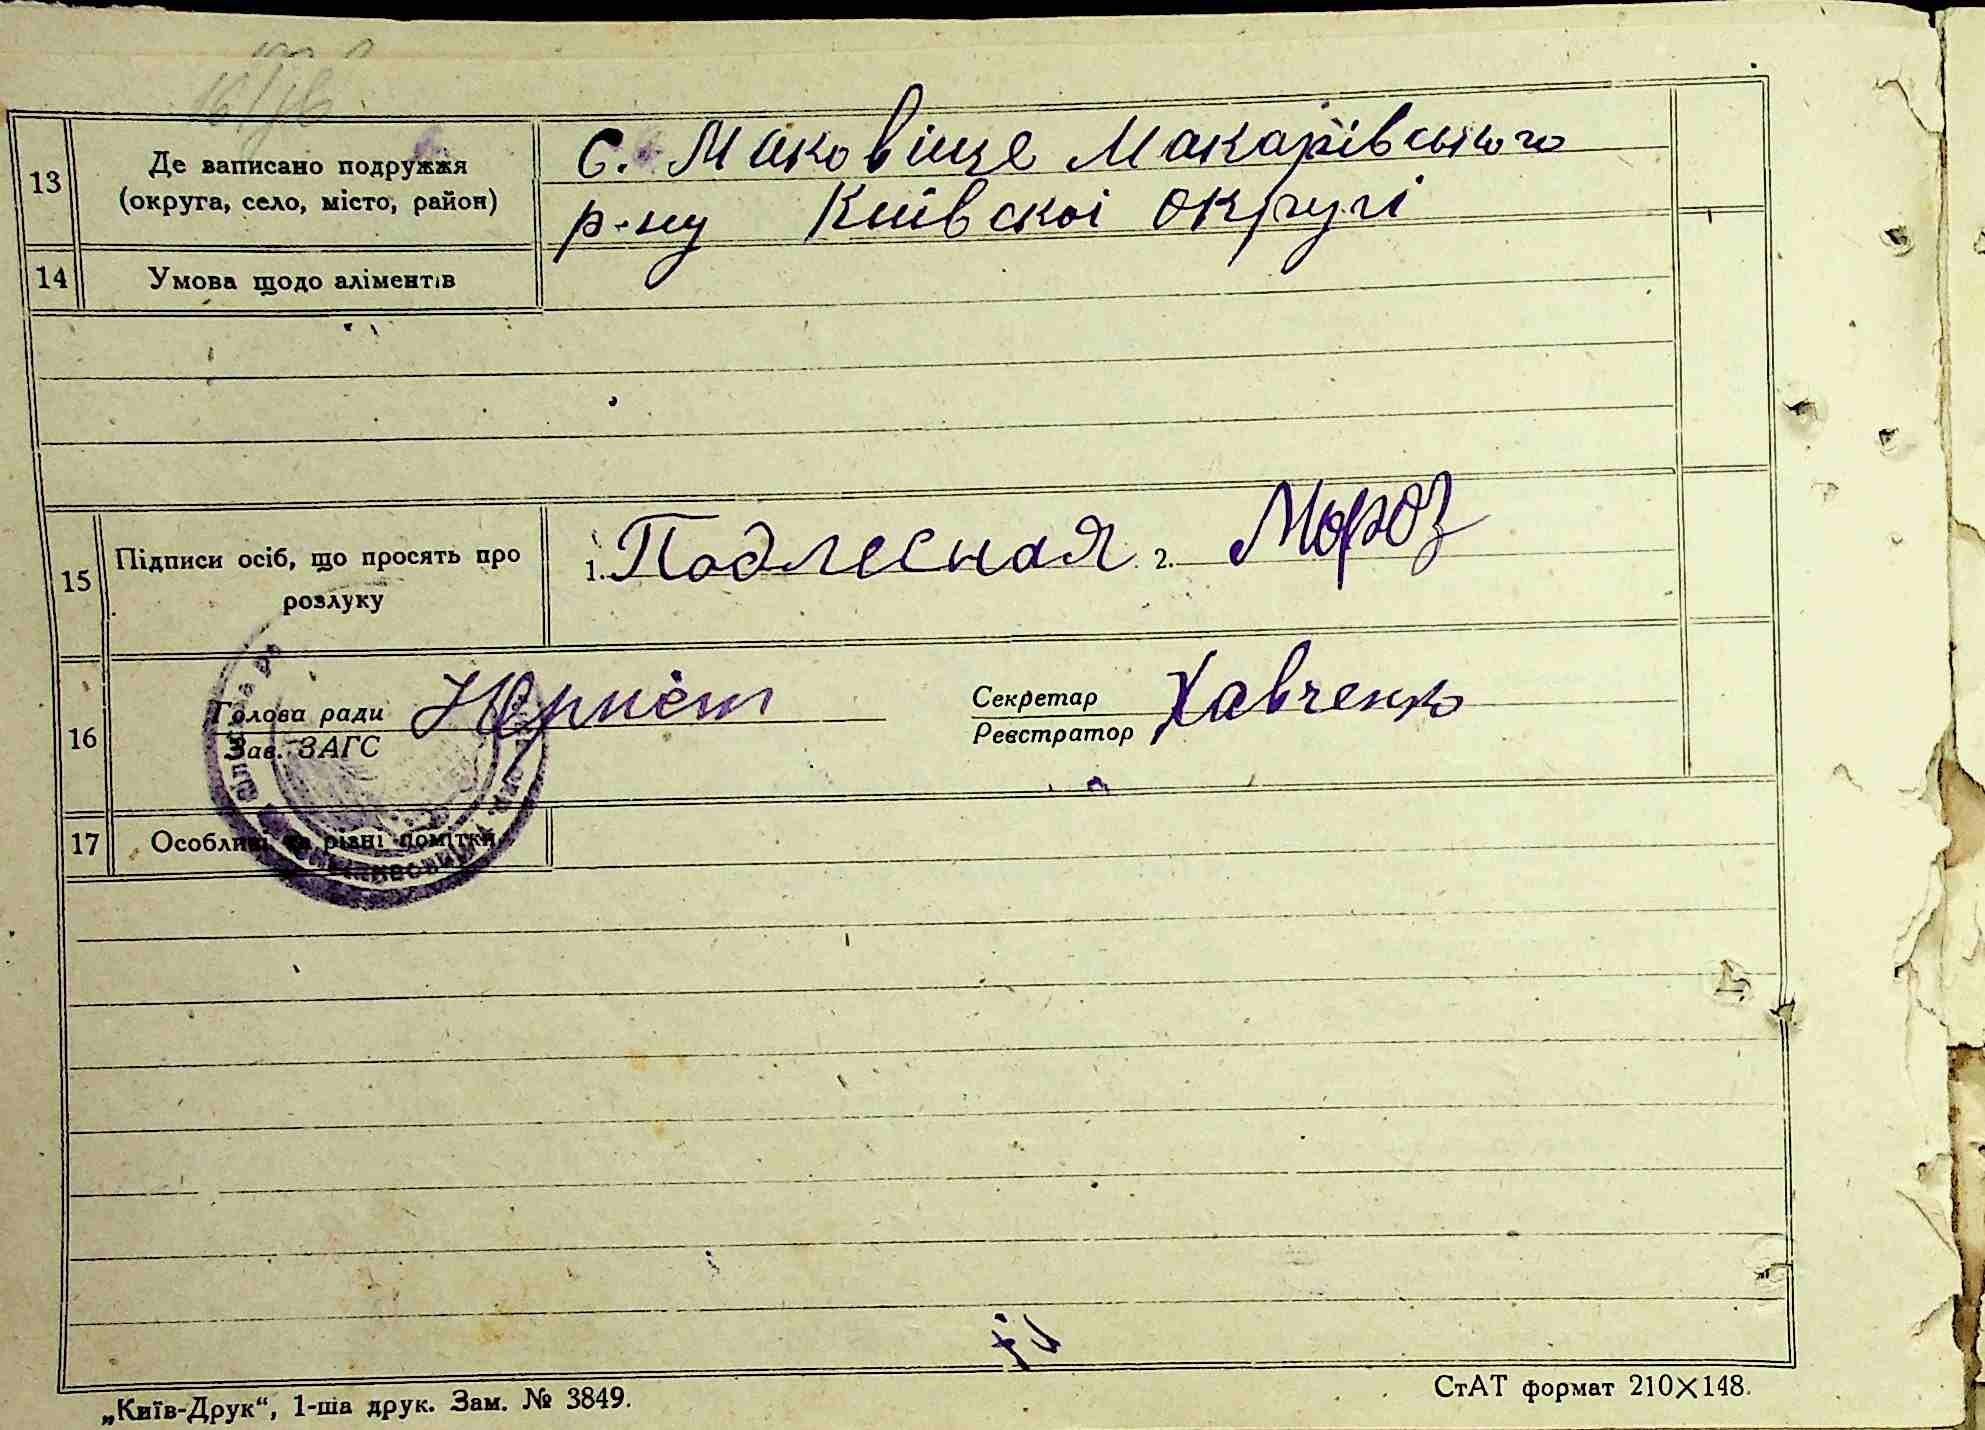 13
Де записано подружжя
(округа, село, місто, район)
с. Маковіще Макарівського
р-ну Київскоі округі
14
Умова щодо аліментів
15
Підписи осіб, що просять про
розлуку
1. Подлесная 2. Мороз
16
Голова ради
Зав. ЗАГС
Секретар
Реєстратор
Хавченко
17
Особливі та різні помітки
„Київ-Друк“, 1-ша друк. Зам. № 3849.
СтАТ формат 210×148.